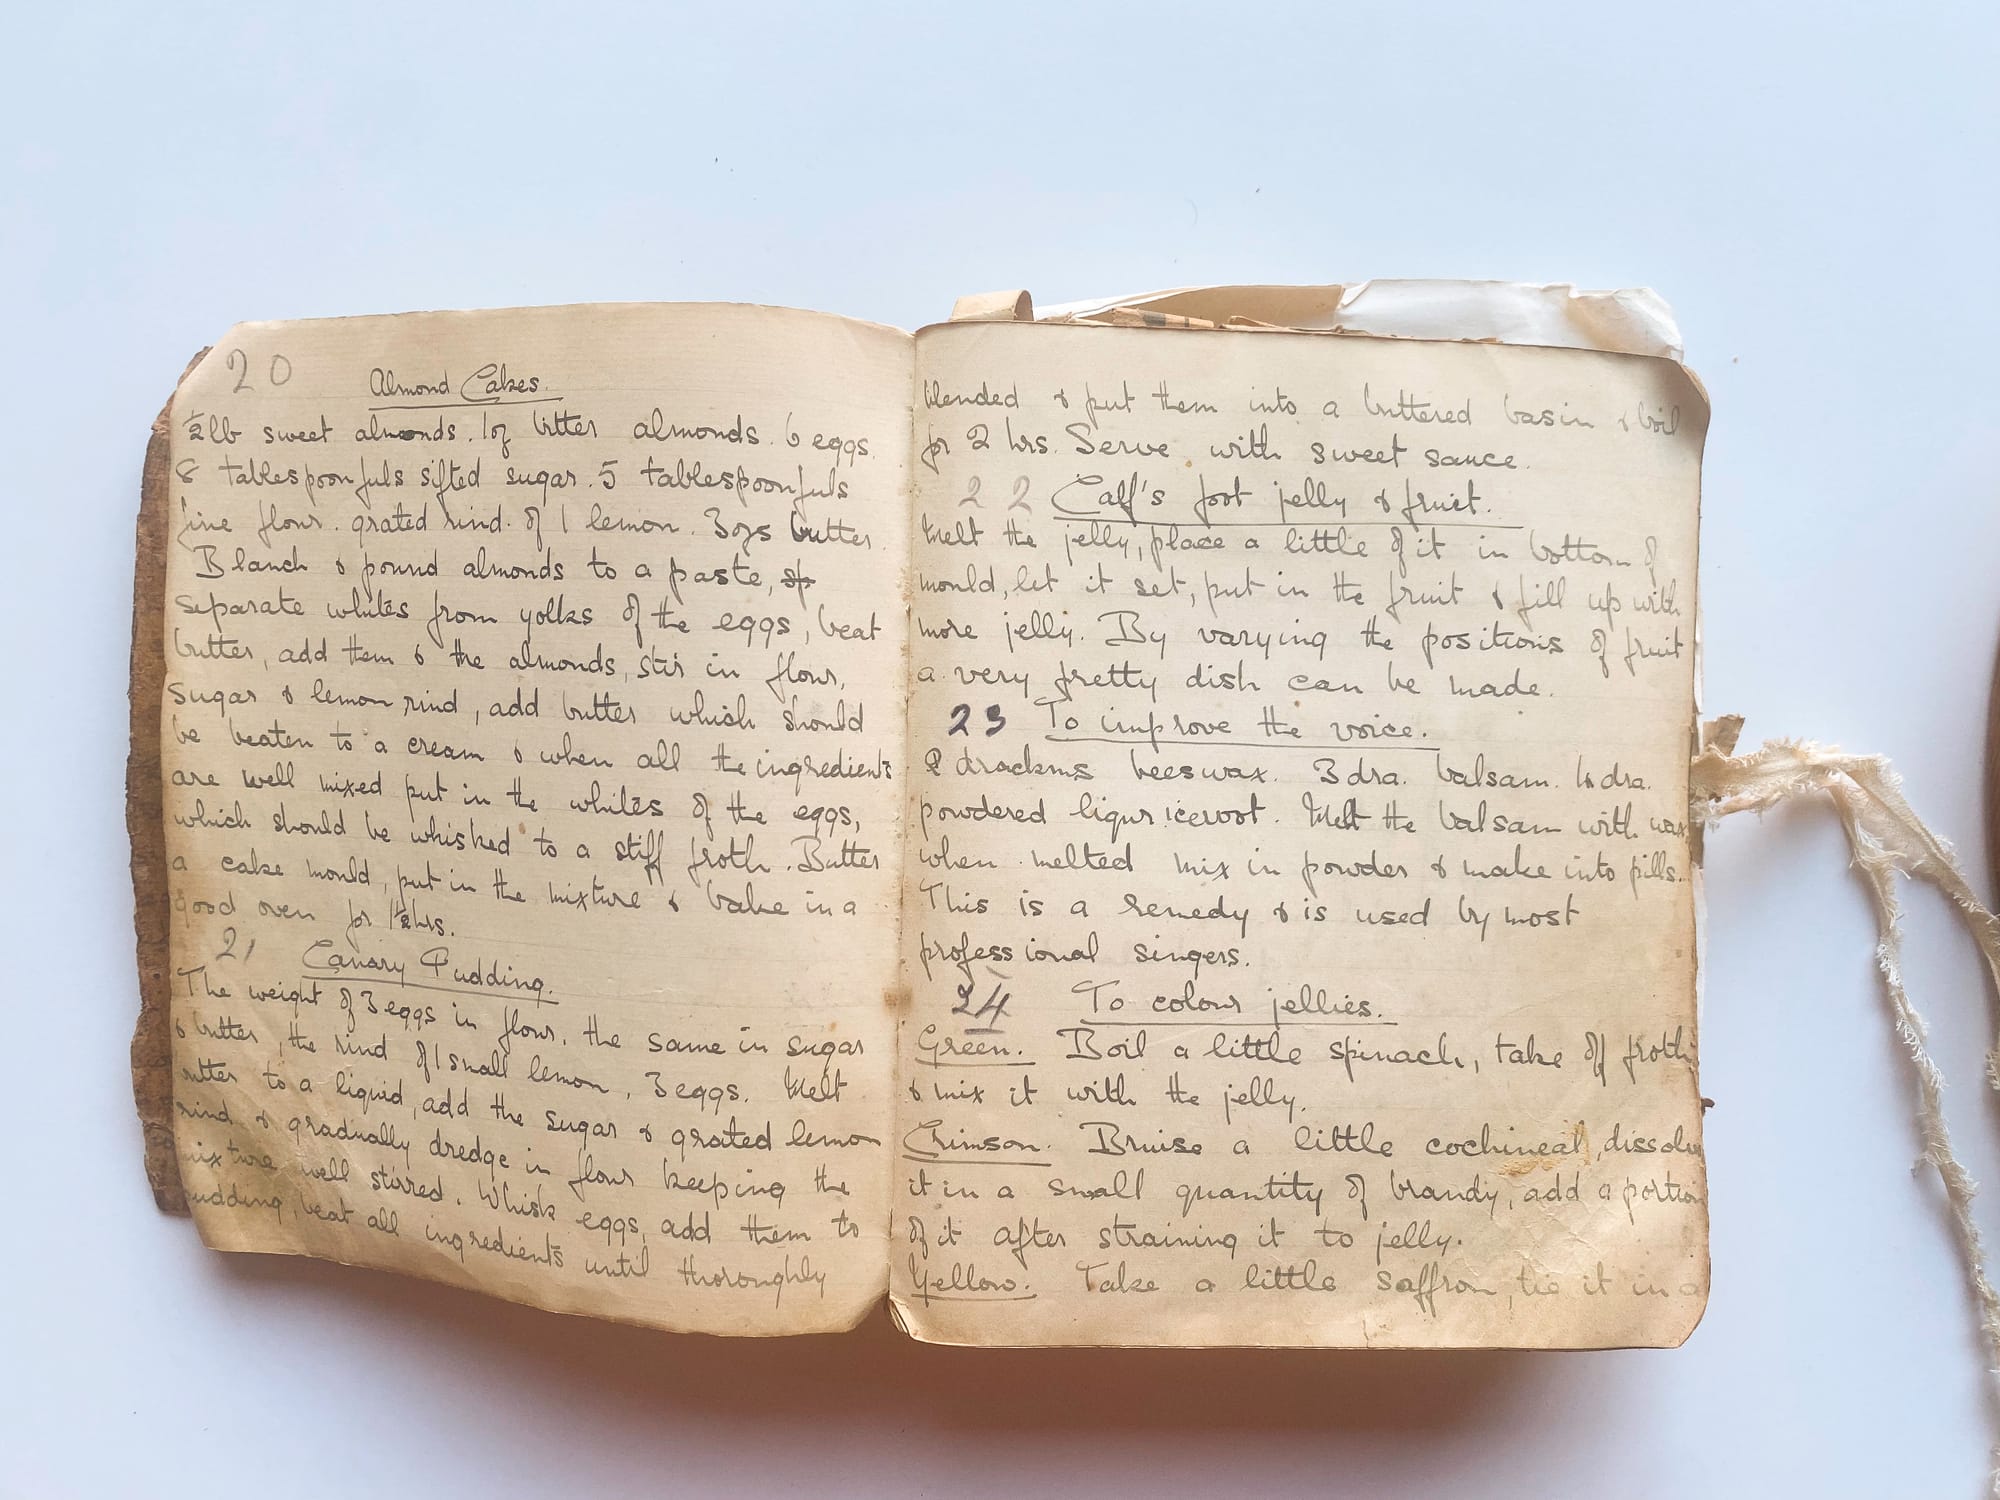 20
Almond Cakes.
½lb sweet almonds. 1oz bitter almonds. 6 eggs.
8 tablespoonfuls sifted sugar. 5 tablespoonfuls
fine flour. grated rind. of 1 lemon. 3ozs butter.
Blanch & pound almonds to a paste, sp
separate whites from yolks of the eggs, beat
butter, add them & the almonds, stir in flour,
sugar & lemon rind, add butter which should
be beaten to a cream & when all the ingredients
are well mixed put in the whites of the eggs,
which should be whisked to a stiff froth. Butter
a cake mould, put in the mixture & bake in a
good oven for 1½hrs.
21 Canary Pudding.
The weight of 3 eggs in flour, the same in sugar
& butter, the rind of 1 small lemon, 3 eggs. Melt
butter to a liquid, add the sugar & grated lemon
rind & gradually dredge in flour keeping the
mixture well stirred. Whisk eggs, add them to
pudding, beat all ingredients until thoroughly
blended & put them into a buttered basin & boil
for 2 hrs. Serve with sweet sauce.
22 Calf's foot jelly & fruit.
Melt the jelly, place a little of it in bottom of
mould, let it set, put in the fruit & fill up with
more jelly. By varying the positions of fruit
a very pretty dish can be made.
23 To improve the voice.
2 drachms beeswax. 3 dra. balsam. dra.
powdered liquriceroot. Melt the balsam with wax
when melted mix in powder & make into pills.
This is a remedy & is used by most
professional singers.
24 To colour jellies.
Green. Boil a little spinach, take off froth
& mix it with the jelly.
Crimson. Bruise a little cochineal, dissolve
it in a small quantity of brandy, add a portion
of it after straining it to jelly.
Yellow. Take a little saffron, tie it in a